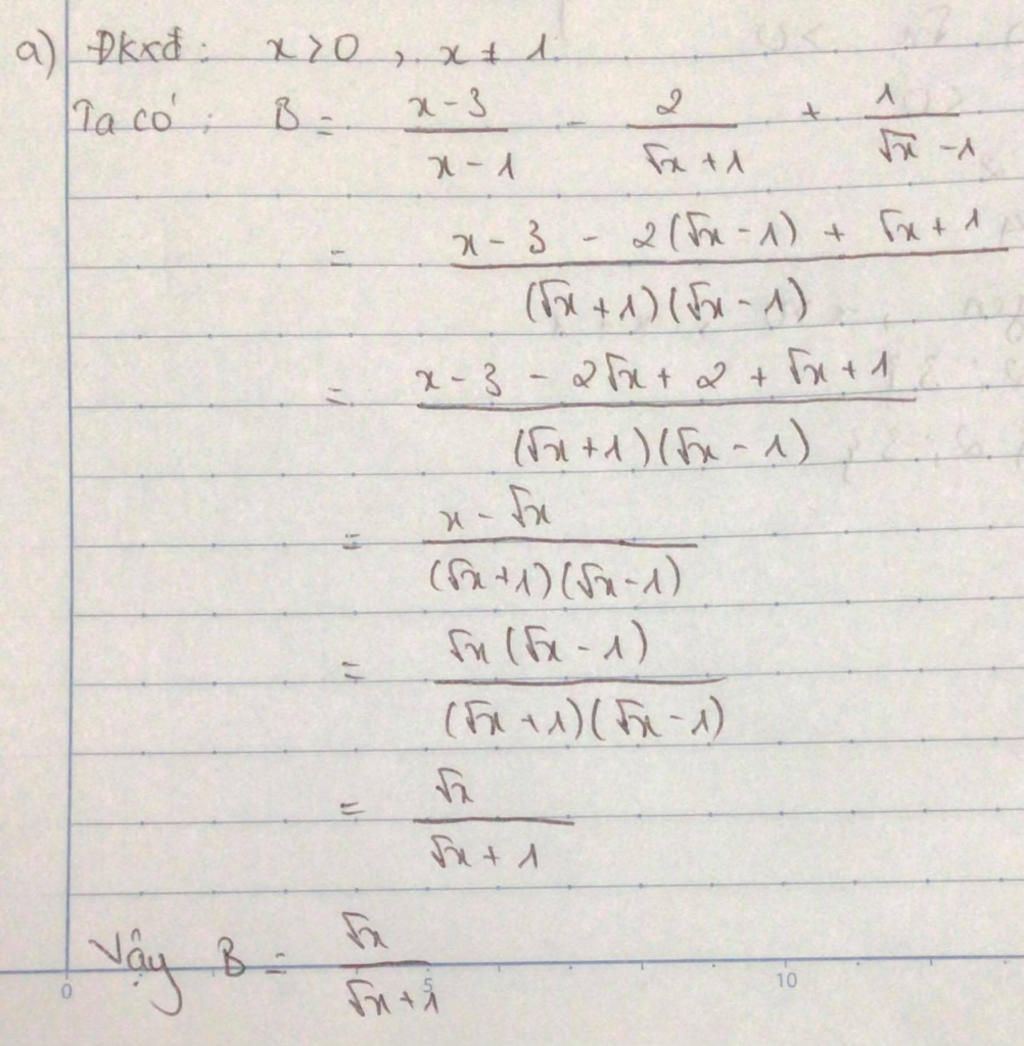 a) Đkxđ: x > 0, x ≠ 1
Ta có: B = \frac{x-3}{x-1} - \frac{2}{\sqrt{x}+1} + \frac{1}{\sqrt{x}-1}
= \frac{x-3-2(\sqrt{x}-1)+\sqrt{x}+1}{(\sqrt{x}+1)(\sqrt{x}-1)}
= \frac{x-3-2\sqrt{x}+2+\sqrt{x}+1}{(\sqrt{x}+1)(\sqrt{x}-1)}
= \frac{x-\sqrt{x}}{(\sqrt{x}+1)(\sqrt{x}-1)}
= \frac{\sqrt{x}(\sqrt{x}-1)}{(\sqrt{x}+1)(\sqrt{x}-1)}
= \frac{\sqrt{x}}{\sqrt{x}+1}
Vậy B = \frac{\sqrt{x}}{\sqrt{x}+1}
0 5 10